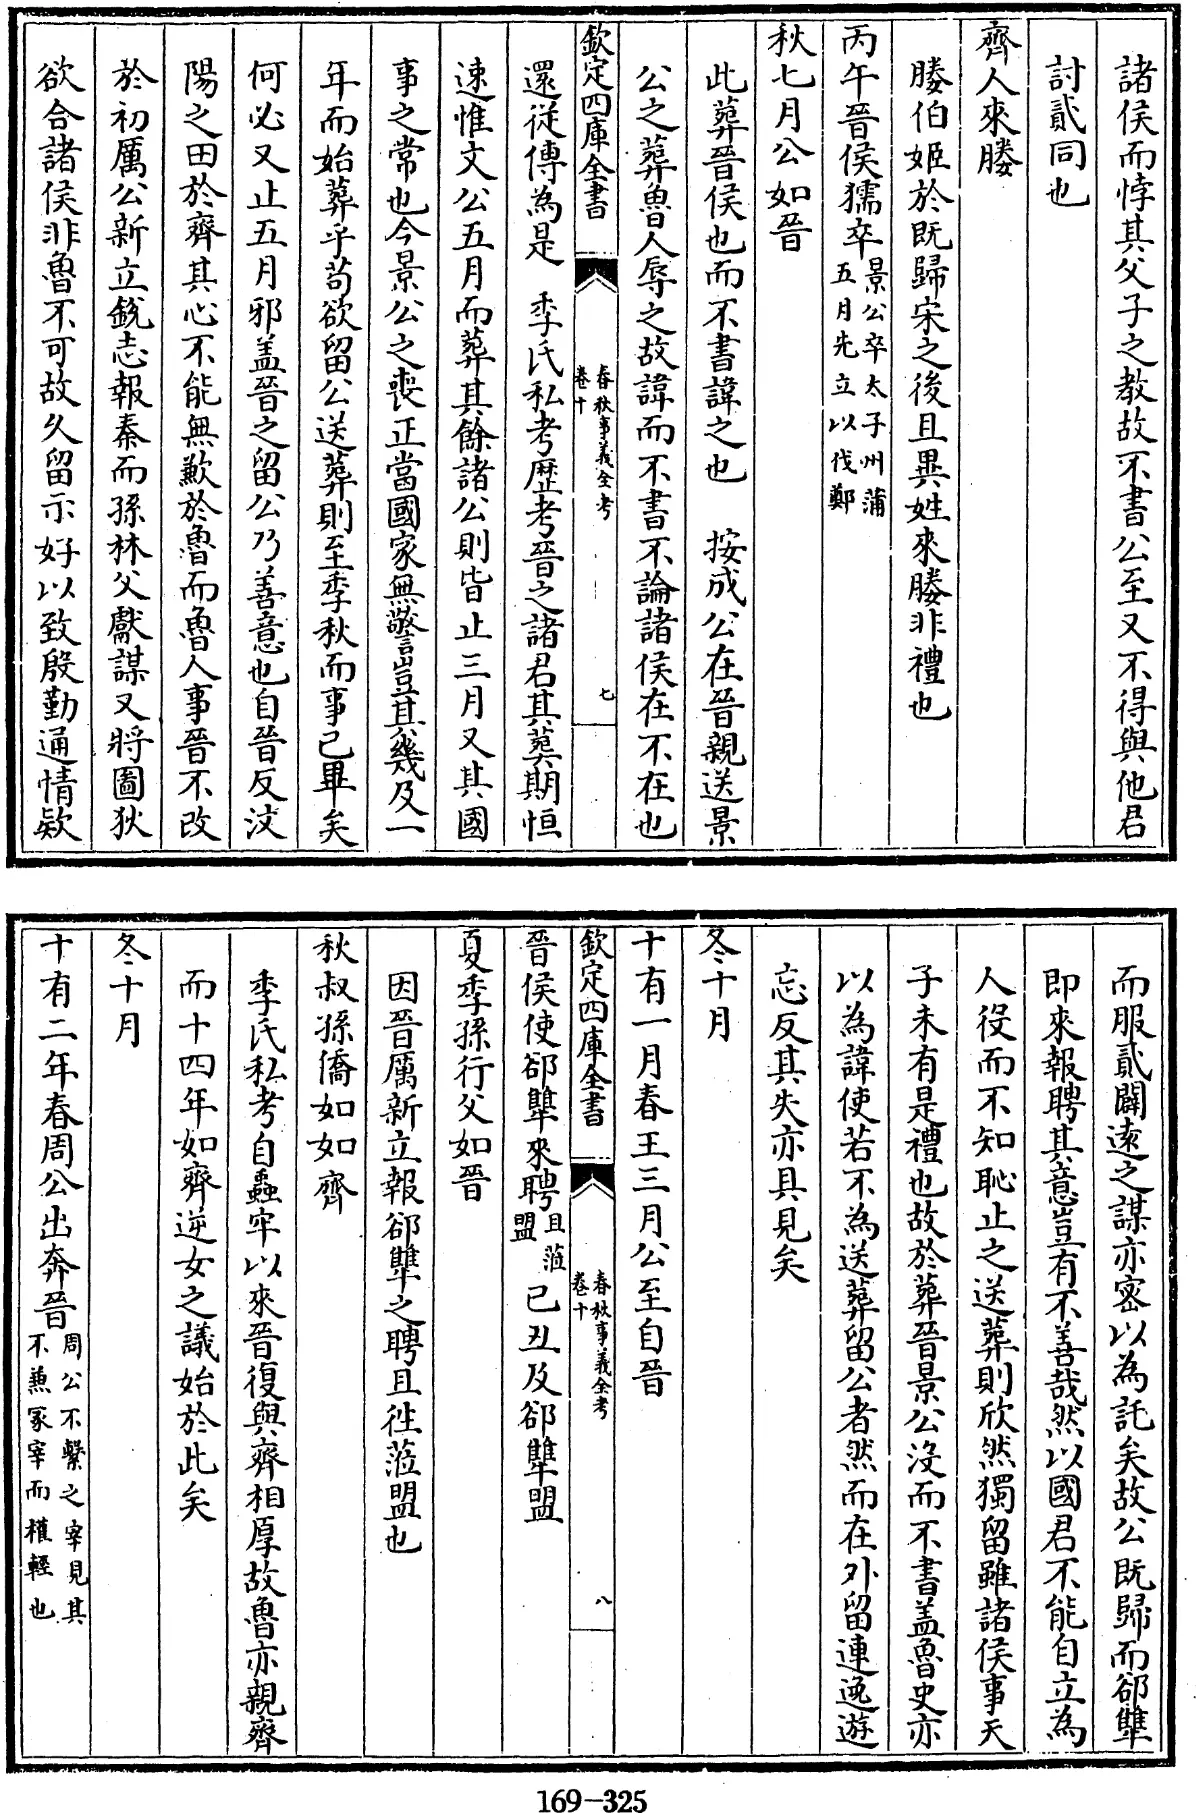 諸侯而悖其父子之教故不書公至又不得與他君
討貳同也
齊人來媵
媵伯姬於既歸宋之後且異姓來媵非禮也
丙午晉侯獳卒景公卒太子州蒲五月先立以伐鄭
秋七月公如晉
此葬晉侯也而不書諱之也 按成公在晉親送景
公之葬魯人辱之故諱而不書不論諸侯在不在也
欽定四庫全書 春秋事義全考卷十 七
還從傳為是 季氏私考歷考晉之諸君其葬期恒
速惟文公五月而葬其餘諸公則皆止三月又其國
事之常也今景公之喪正當國家無警豈其幾及一
年而始葬乎苟欲留公送葬則至季秋而事已畢矣
何必又止五月邪盖晉之留公乃善意也自晉反汶
陽之田於齊其心不能無歉於魯而魯人事晉不改
於初厲公新立銳志報秦而孫林父獻謀又將圖狄
欲合諸侯非魯不可故久留示好以致殷勤通情欵
而服貳闢遠之謀亦密以為託矣故公既歸而郤犫
即來報聘其意豈有不善哉然以國君不能自立為
人役而不知恥止之送葬則欣然獨留雖諸侯事天
子未有是禮也故於葬晉景公沒而不書盖魯史亦
以為諱使若不為送葬留公者然而在外留連逸遊
忘反其失亦具見矣
冬十月
十有一月春王三月公至自晉
欽定四庫全書 春秋事義全考卷十 八
晉侯使郤犫來聘且涖盟己丑及郤犫盟
夏季孫行父如晉
因晉厲新立報郤犫之聘且徃涖盟也
秋叔孫僑如如齊
季氏私考自蟲牢以來晉復與齊相厚故魯亦親齊
而十四年如齊逆女之議始於此矣
冬十月
十有二年春周公出奔晉周公不繫之宰見其不兼冢宰而權輕也
169-325